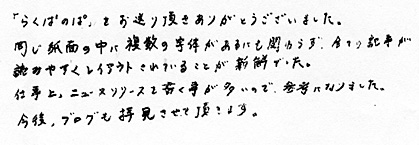 「らくぱのぱ」をお送り頂きありがとうございました。
同じ紙面の中に複数の字体があるにも関わらず、全ての記事が
読みやすくレイアウトされていることが新鮮でした。
仕事上、ニュースリリースを書く事が多いので、参考になりました。
今後、ブログも拝見させて頂きます。